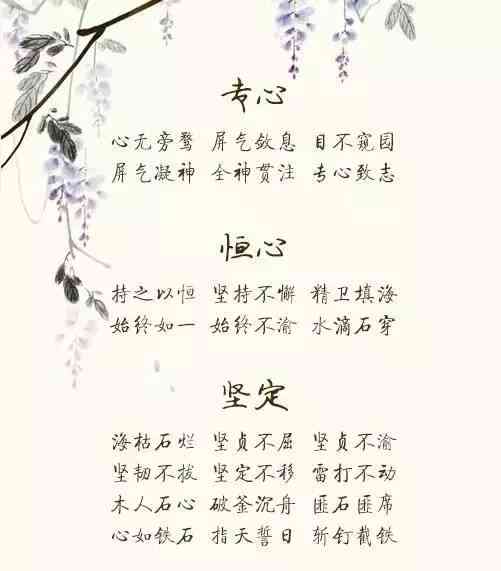 专心
心无旁骛 屏气敛息 目不窥园
屏气凝神 全神贯注 专心致志
恒心
持之以恒 坚持不懈 精卫填海
始终如一 始终不渝 水滴石穿
坚定
海枯石烂 坚贞不屈 坚贞不渝
坚韧不拔 坚定不移 雷打不动
木人石心 破釜沉舟 匪石匪席
心如铁石 指天誓日 斩钉截铁